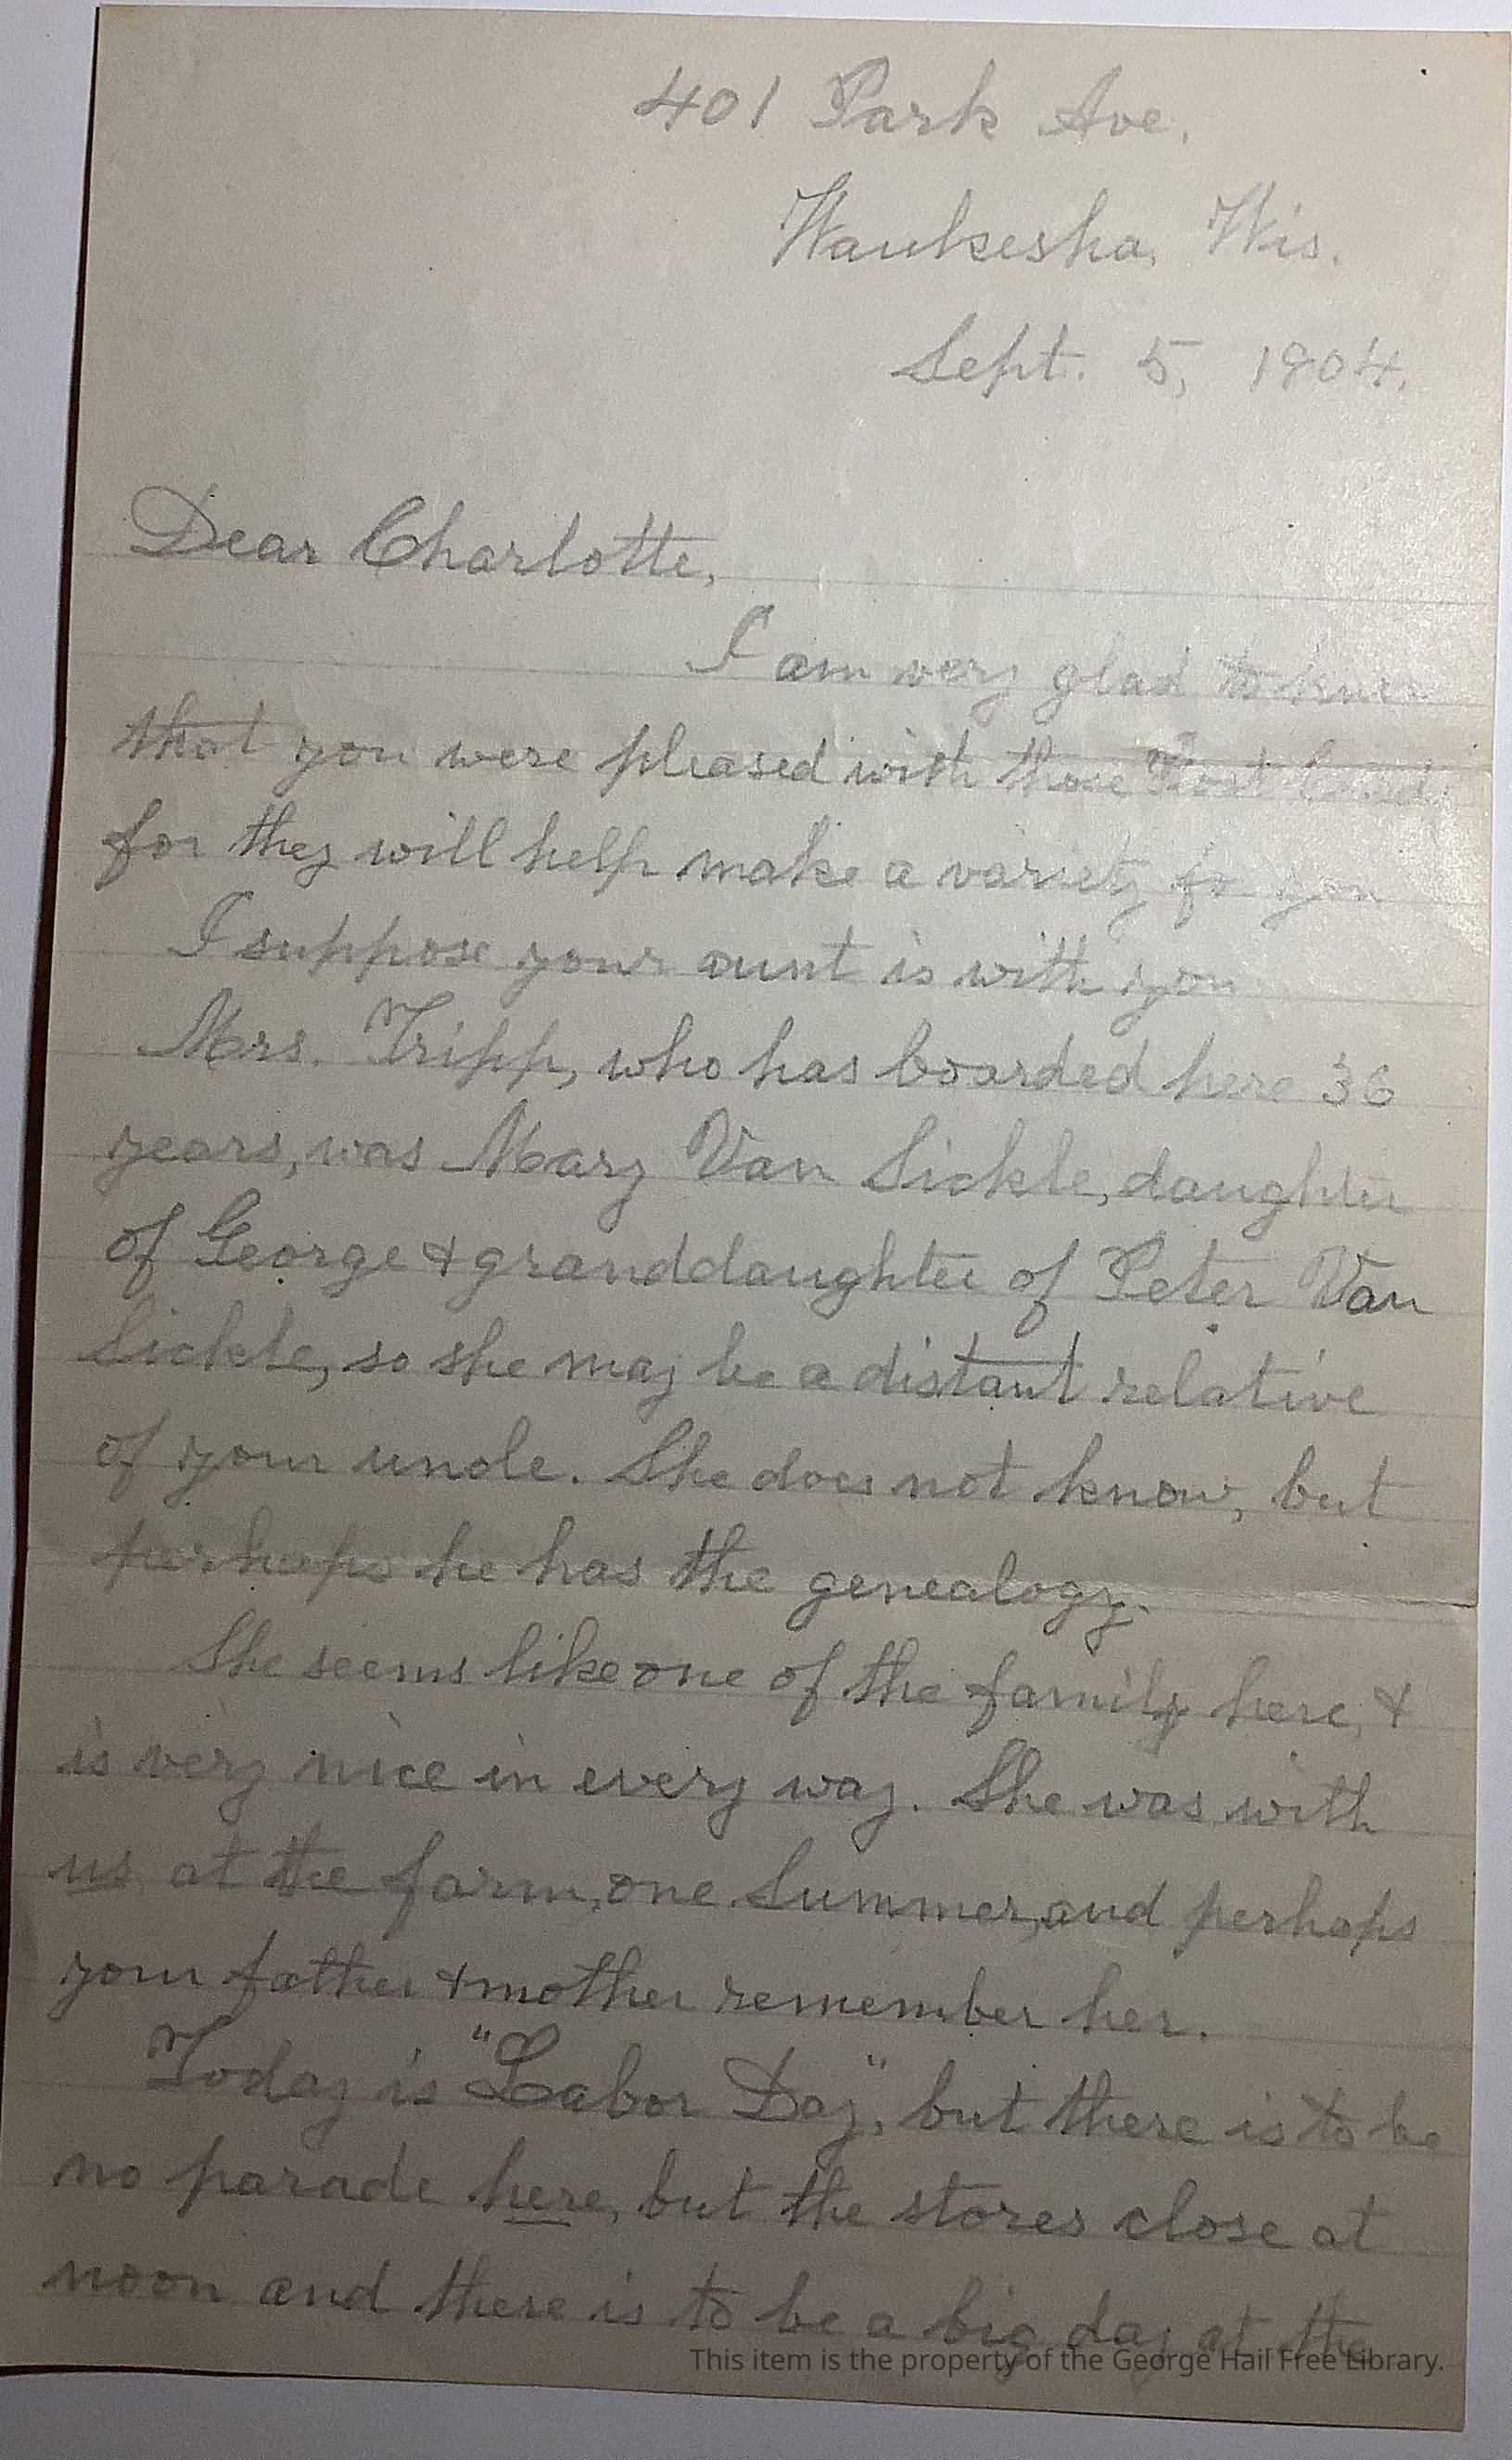 401 Park Ave.
Waukesha, Wis.
Sept. 5, 1904.
Dear Charlotte,
I am very glad to know
that you were pleased with those Post Cards
for they will help make a variety for you
I suppose your aunt is with you
Mrs. Tripp, who has boarded here 36
years, was Mary Van Sickle, daughter
of George & granddaughter of Peter Van
Sickle, so she may be a distant relative
of your uncle. She does not know, but
perhaps he has the genealogy.
She seems like one of the family here, &
is very nice in every way. She was with
us at the farm, one Summer, and perhaps
your father & mother remember her.
Today is "Labor Day", but there is to be
no parade here, but the stores close at
noon and there is to be a big day at the
This item is the property of the George Hail Free Library.